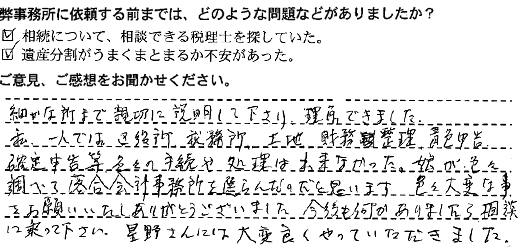 弊事務所に依頼する前までは、どのような問題などがありましたか？
☑相続について、相談できる税理士を探していた。
☑遺産分割がうまくまとまるか不安があった。
ご意見、ご感想をお聞かせください。
細かな所まで親切に説明して下さり、理解できました。
私、一人では 税務所 土地 財務整理、青色申告
確定申告等色々の手続や処理は出来なかった。娘が色々
調べて落合会計事務所を選らんだのだと思います 色々大変な事
をお願いいたしありがとうございました 今後も何かありましたら相談
に乗って下さい 星野さんには大変良くやっていただきました。